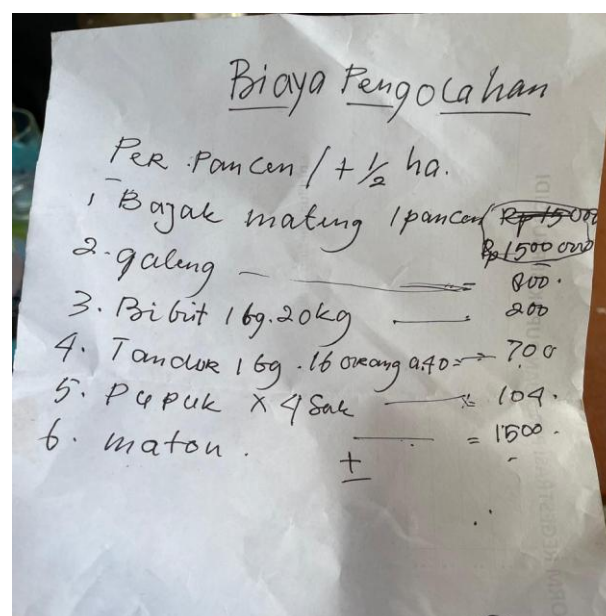 Biaya Pengolahan
Per Pancen / + 1/2 ha.
1 Bajak mateng 1 pancen Rp 15 000
Rp 1500 000
2. galeng = 800.
3. Bibit 1 bg. 20 kg 200
4. Tandur 1 bg. 16 orang a. 40 = 700
5. Pupuk x 4 Sak = 104.
6. maton. = 1500.
+